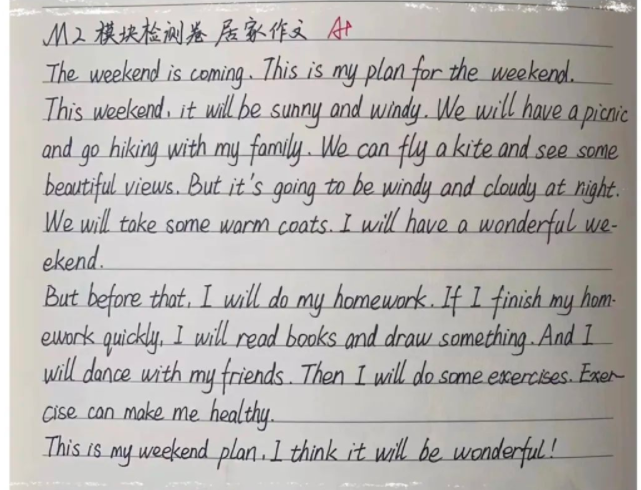 M2 模块检测卷 居家作文 A+
The weekend is coming. This is my plan for the weekend.
This weekend, it will be sunny and windy. We will have a picnic
and go hiking with my family. We can fly a kite and see some
beautiful views. But it's going to be windy and cloudy at night.
We will take some warm coats. I will have a wonderful we-
ekend.
But before that, I will do my homework. If I finish my hom-
ework quickly, I will read books and draw something. And I
will dance with my friends. Then I will do some exercises. Exer-
cise can make me healthy.
This is my weekend plan, I think it will be wonderful!